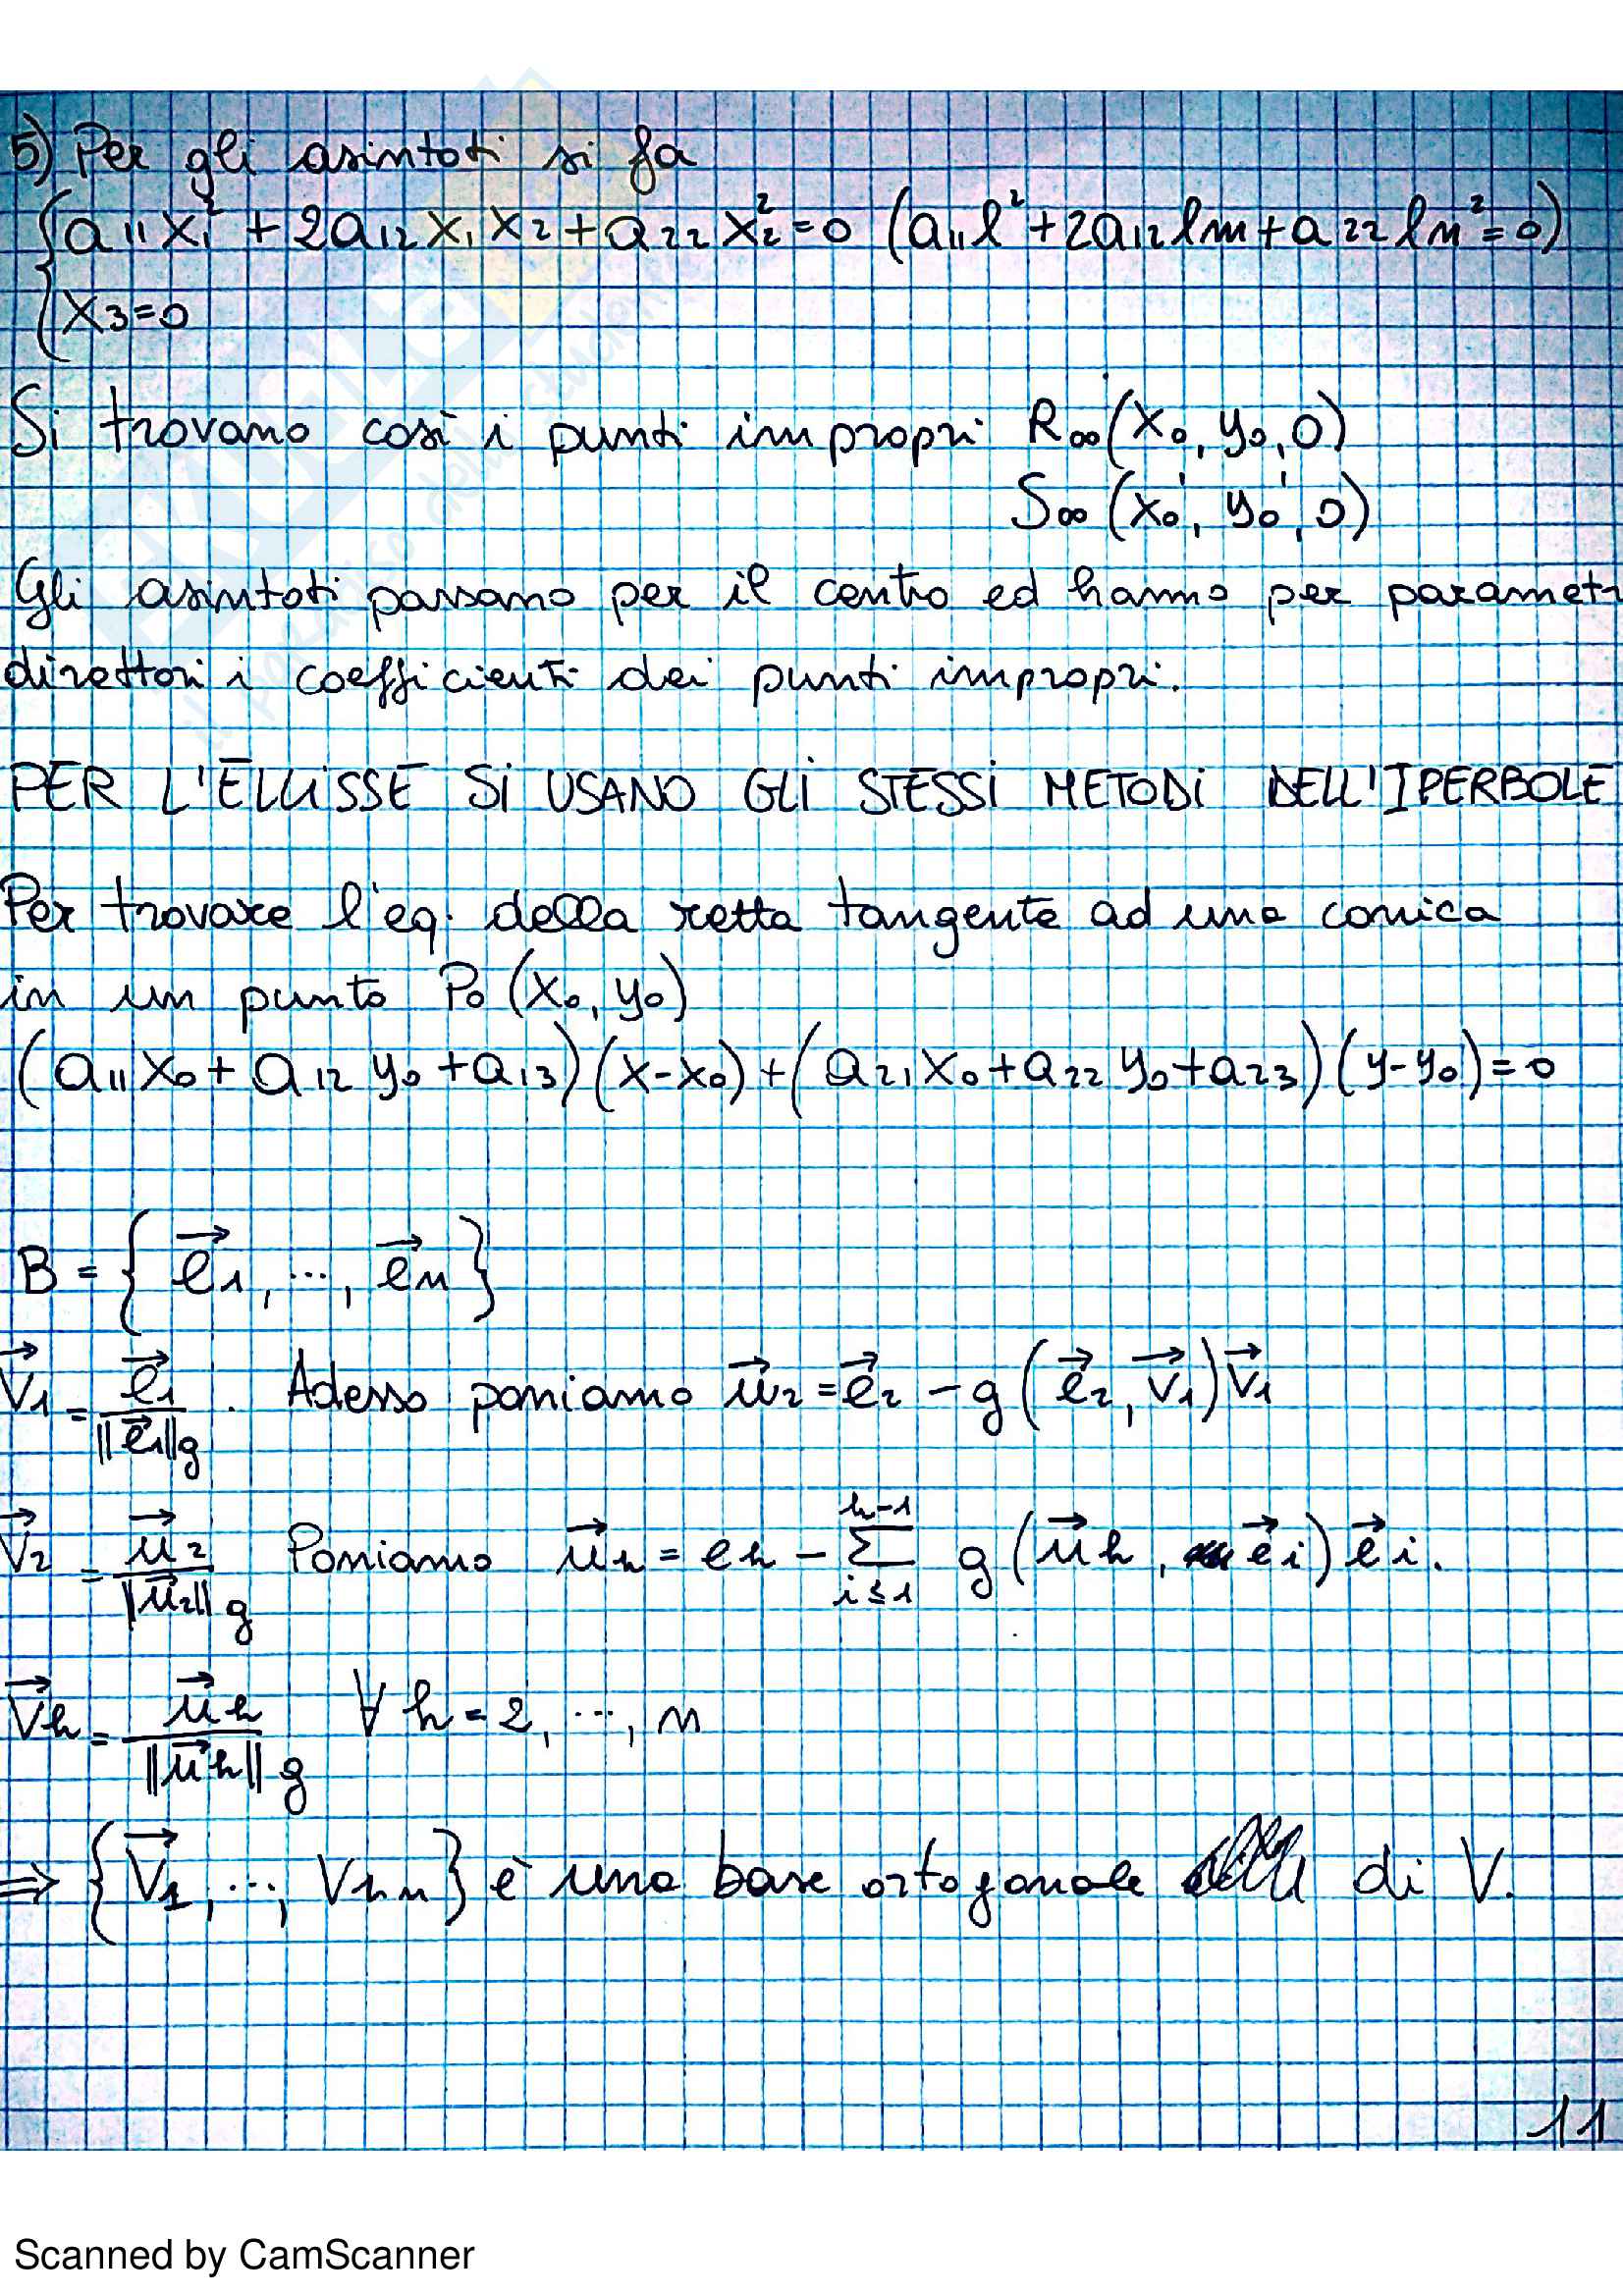 5) Per gli asintoti si fa
{a₁₁x₁² + 2a₁₂x₁x₂ + a₂₂x₂² = 0 (a₁₁l² + 2a₁₂lm + a₂₂lm² = 0)
{x₃ = 0
Si trovano così i punti impropri R∞(x₀, y₀, 0)
S∞(x₀', y₀', 0)
Gli asintoti passano per il centro ed hanno per parametr
direttori i coefficienti dei punti impropri.
PER L'ELLISSE SI USANO GLI STESSI METODI DELL'IPERBOLE
Per trovare l'eq. della retta tangente ad una conica
in un punto P₀(x₀, y₀)
(a₁₁x₀ + a₁₂y₀ + a₁₃)(x-x₀) + (a₂₁x₀ + a₂₂y₀ + a₂₃)(y-y₀) = 0
B = {e⃗₁, ..., e⃗ₙ}
v⃗₁ = e⃗₁/||e⃗₁||g . Adesso poniamo u⃗₂ = e⃗₂ - g(e⃗₂, v⃗₁)v⃗₁
v⃗₂ = u⃗₂/||u⃗₂||g Poniamo u⃗h = eh - Σ_{i≤1}^{h-1} g(u⃗h, e⃗i)e⃗i.
v⃗h = u⃗h/||u⃗h||g ∀ h = 2, ..., n
⇒ {v⃗₁, ..., v n} è una base ortogonale di V.
11
Scanned by CamScanner